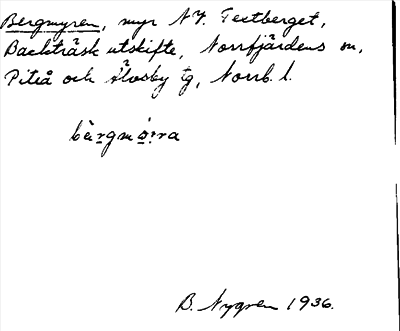 Bergmyren, myr NV. Tectberget,
Backträsk utskifte, Norrfjärdens sn,
Piteå och Älvsby tg, Norrb. l.
bèrgmo̤rra
B. Nygren 1936.